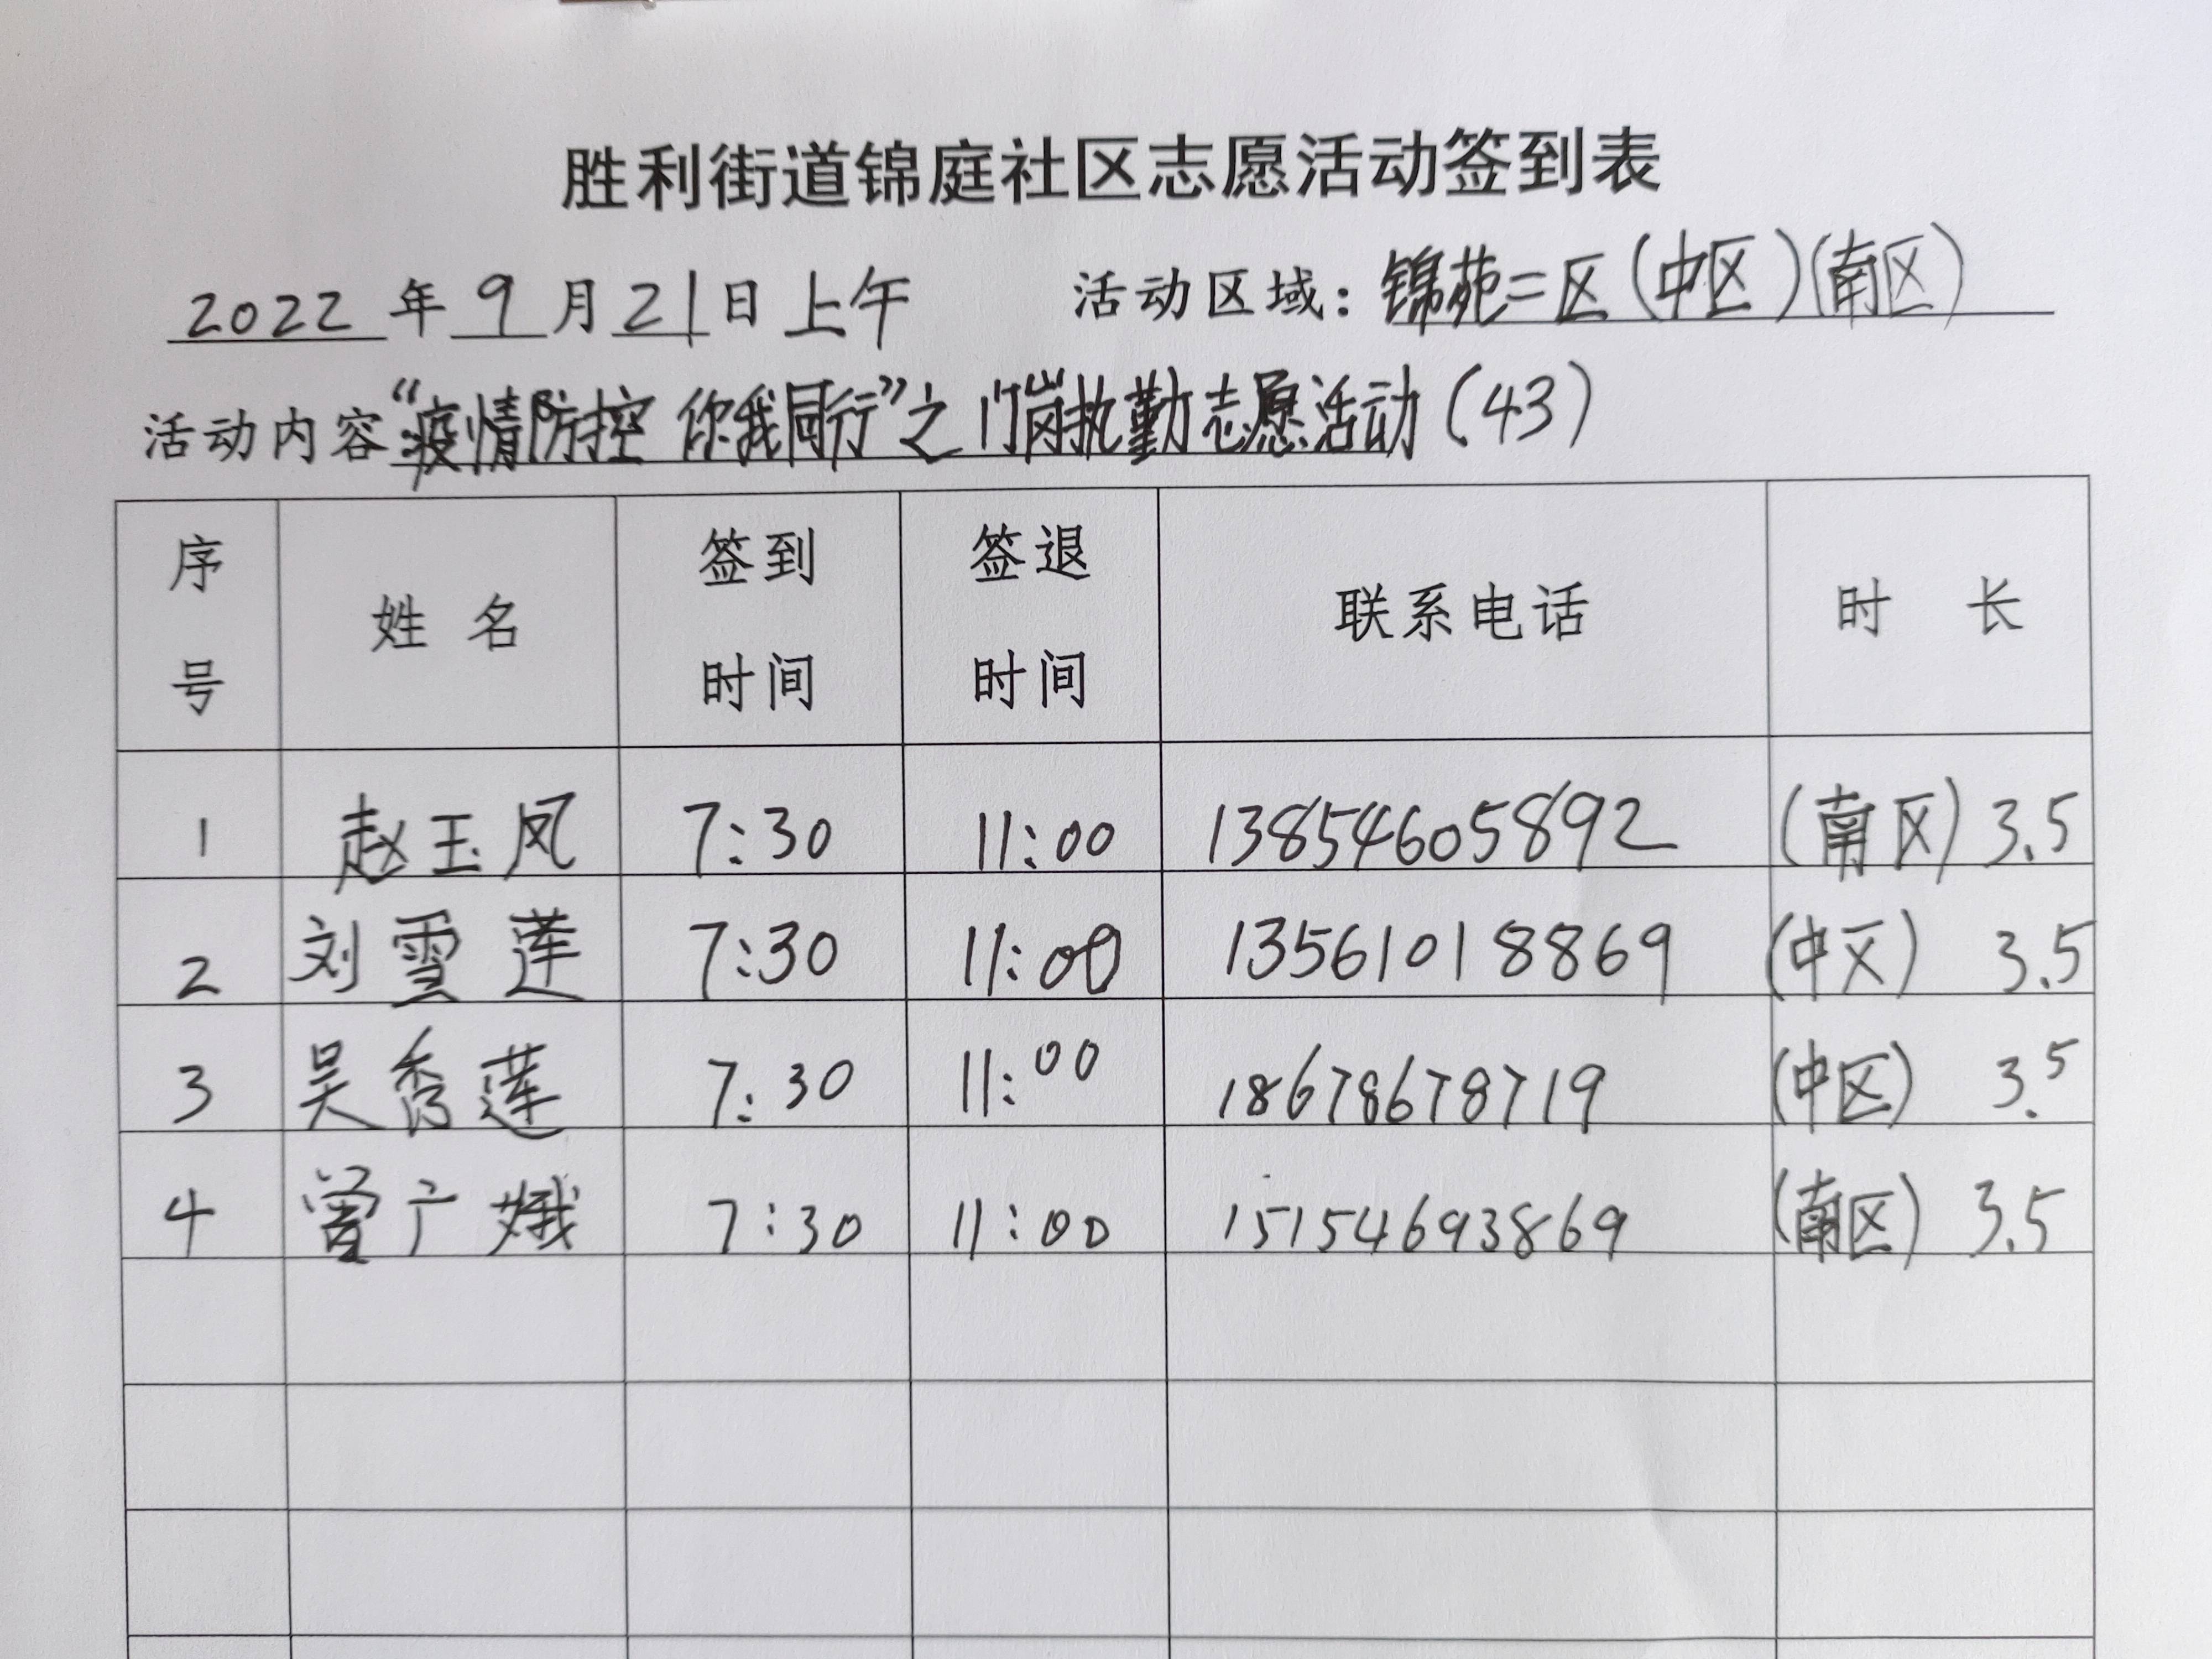 胜利街道锦庭社区志愿活动签到表
2022年9月21日上午 活动区域：锦苑二区(中区)(南区)
活动内容“疫情防控 你我同行”之门岗执勤志愿活动(43)
序号 姓名 签到时间 签退时间 联系电话 时长
1 赵玉凤 7:30 11:00 13854605892 (南区) 3.5
2 刘雪莲 7:30 11:00 13561018869 (中区) 3.5
3 吴秀莲 7:30 11:00 18678678719 (中区) 3.5
4 曾广娥 7:30 11:00 15154693869 (南区) 3.5